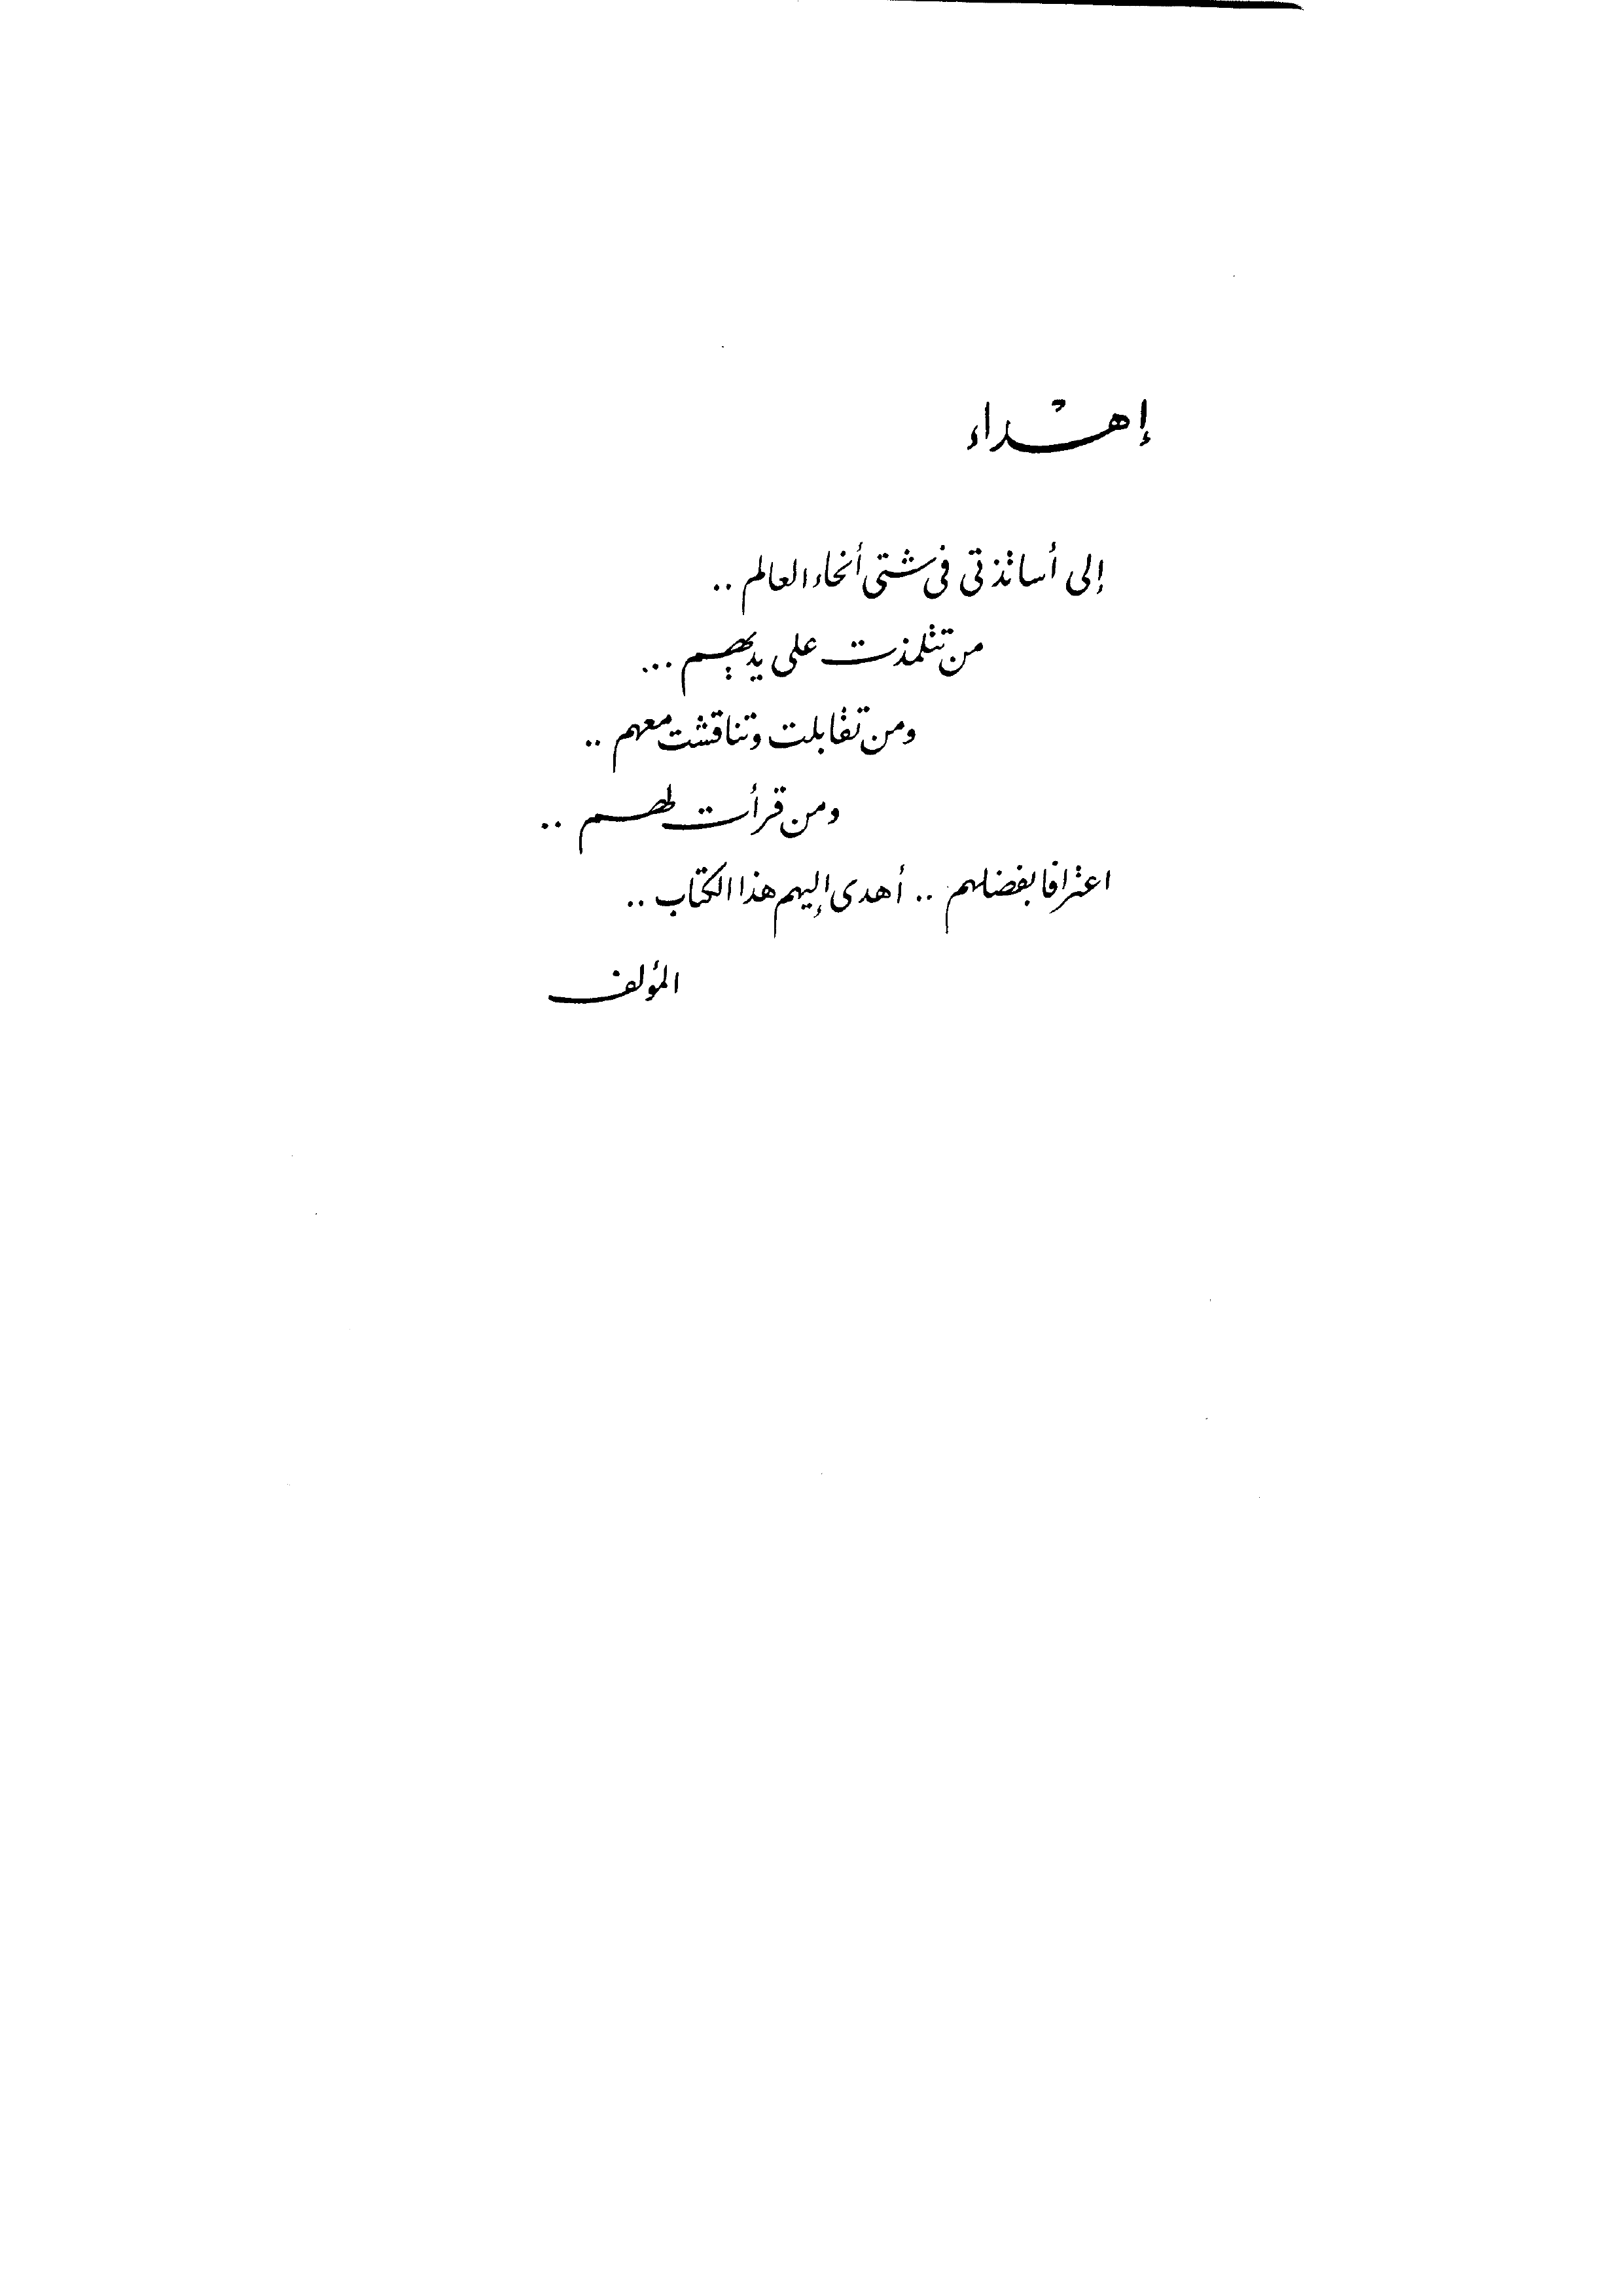 إهداء
إلى أساتذتى فى شتى أنحاء العالم ..
من تتلمذت على يديهم ...
ومن تقابلت وتناقشت معهم ..
ومن قرأت لهم ..
اعترافا بفضلهم .. أهدى إليهم هذا الكتاب ..
المؤلف